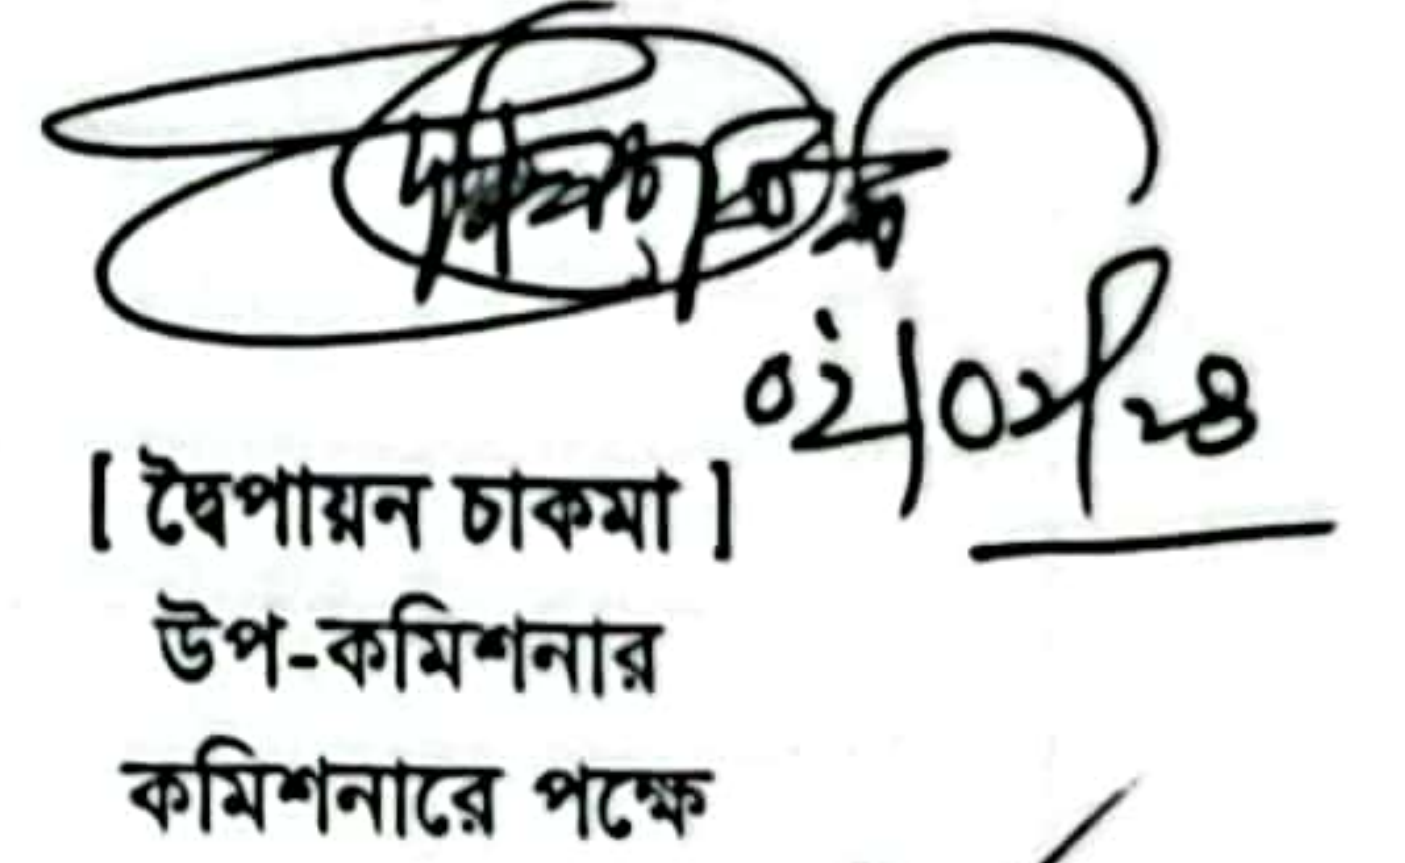 ০২/০২/২৪
[ দ্বৈপায়ন চাকমা ]
উপ-কমিশনার
কমিশনারে পক্ষে